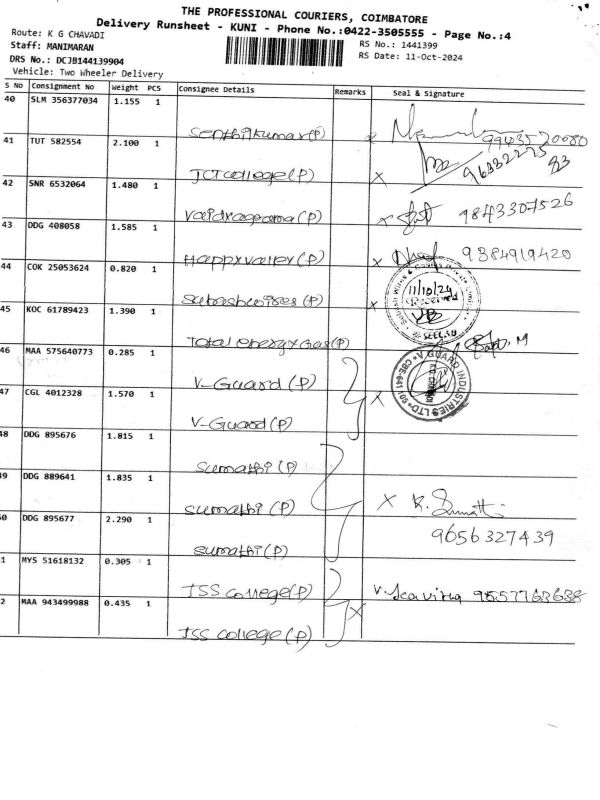 THE PROFESSIONAL COURIERS, COIMBATORE
Delivery Runsheet - KUNI - Phone No.:0422-3505555 - Page No.:4
Route: K G CHAVADI
RS No.: 1441399
Staff: MANIMARAN
RS Date: 11-Oct-2024
DRS No.: DCJB144139904
Vehicle: Two Wheeler Delivery
S No Consignment No Weight PCS Consignee Details Remarks Seal & Signature
40 SLM 356377034 1.155 1
Senthilkumar(P) x 9943520080
41 TUT 582554 2.100 1
JCT college(P) x
42 SNR 6532064 1.480 1
Vaidyagrama(P) x 9843307526
43 DDG 408058 1.585 1
Happy valley(P) x 9384919420
44 COK 25053624 0.820 1
Subash wires (P) x
11/10/24
Received
45 KOC 61789423 1.390 1
Total energy Gas(P)
46 MAA 575640773 0.285 1
V-Guard(P)
V GUARD INDUSTRIES LTD
47 CGL 4012328 1.570 1 x
V-Guard(P)
48 DDG 895676 1.815 1
Sumathi(P)
49 DDG 889641 1.835 1
Sumathi(P) x K. Sumathi
50 DDG 895677 2.290 1 9656327439
Sumathi(P)
1 MYS 51618132 0.305 1
JSS College(P)
2 MAA 943499988 0.435 1 x
JSS College(P)